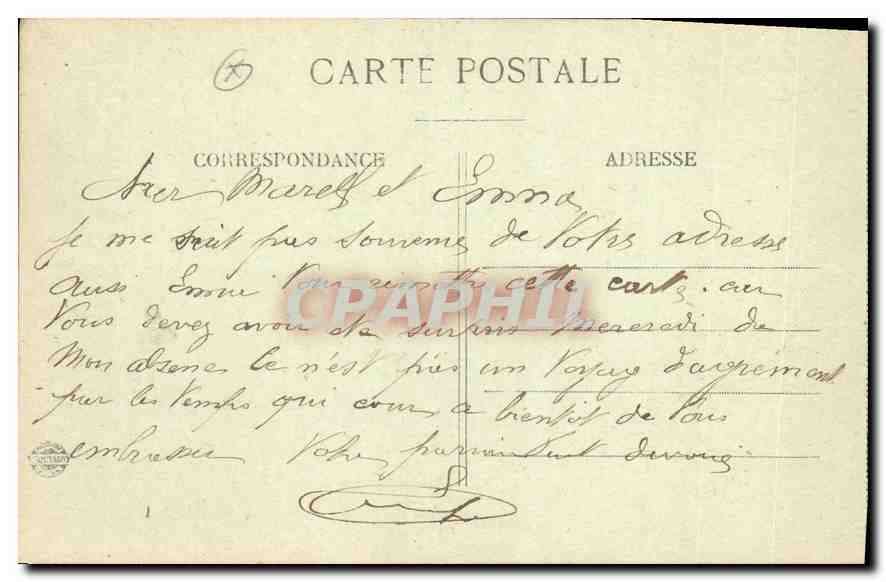 CARTE POSTALE
CORRESPONDANCE
ADRESSE
Cher Marcel et Emma
Je me suit pas souvenu de Votre adresse
aussi Emma Vous remettra cette carte. car
Vous devez avoir ete surpris Mercredi de
Mon absence Ce n'est pas un Voyage d'agrement
par les temps qui cour a bientot de Vous
embrasser Votre parrain tout devoué
CPAPHIL